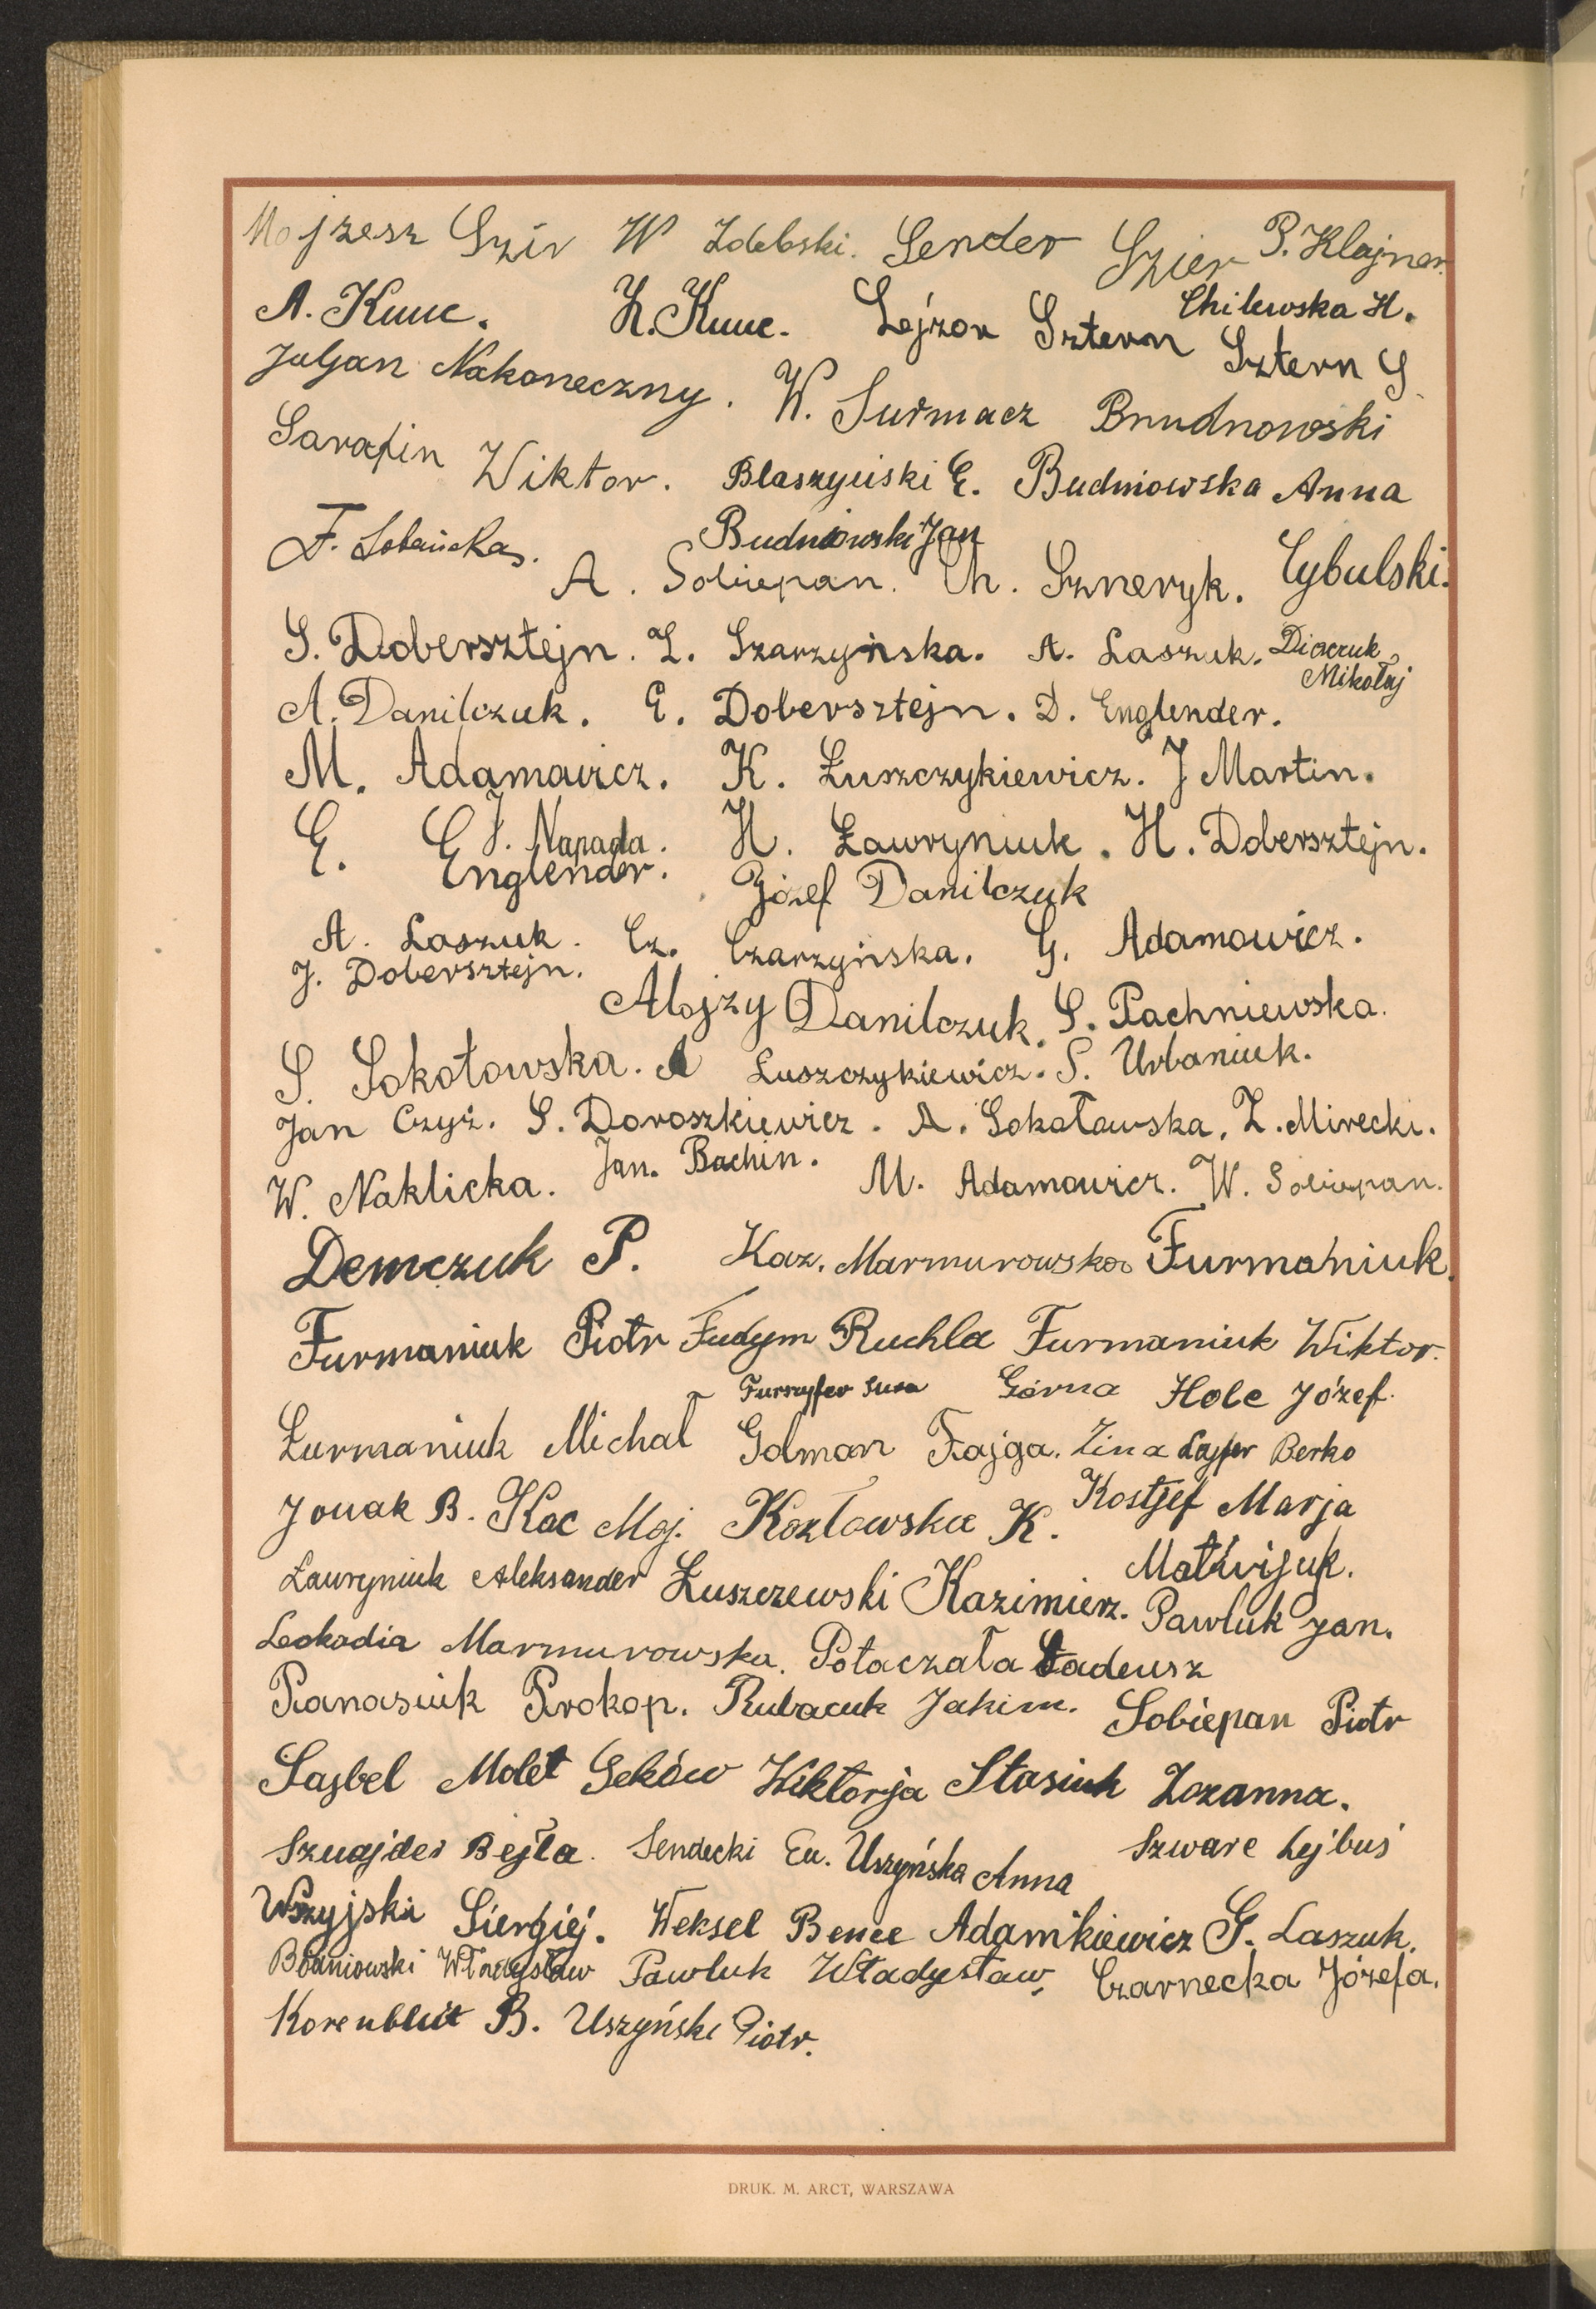 Mojzesz Szir W Zdebski. Sender Szier P. Klajner.
A. Kuuc. H. Kuuc. Lejzor Sztern Chilewska H.
Sztern S
Juljan Nakoneczny. W. Surmacz Brudnowski
Sarafin Wiktor. Blaszyński E. Budniowska Anna
F. Budniowski Jan
A. Sobiepan. Ch. Szneryk. Cybulski.
S. Dobersztejn. Z. Szarzyńska. A. Laszuk. Mikołaj
A. Danilczuk. E. Dobersztejn. D. Englender.
M. Adamowicz. K. Łuszczykiewicz. J Martin.
E. Englender. J. Napada. H. Ławryniuk. H. Dobersztejn.
Józef Danilczuk
A. Laszuk. Cz. Czarzyńska. G. Adamowicz.
J. Dobersztejn.
Alojzy Danilczuk. S. Pachniewska.
S. Sokołowska. A Łuszczykiewicz. S. Urbaniuk.
Jan Czyż. S. Doroszkiewicz. A. Sokołowska, Z. Mirecki.
W. Naklicka. Jan. Bachin. M. Adamowicz. W. Sobiepan.
Demczuk P. Kaz. Marmurowska Furmaniuk.
Furmaniuk Piotr Fudym Ruchla Furmaniuk Wiktor.
Furszyfer Sura Górna Hole Józef.
Furmaniuk Michał Golman Fajga. Zina Lajfer Berko
Jouak B. Kac Moj. Kozłowska K. Kostjef Marja
Ławryniuk Aleksander Łuszczewski Kazimierz. Matwijuk.
Pawluk Jan.
Leokadia Marmurowska. Potaczała Tadeusz
Panasiuk Prokop. Rubacuk Jakim. Sobiepan Piotr
Sajbel Molet Seków Wiktorja Stasiuk Zozanna.
Sznajder Bejla. Sendecki Eu. Uszyńska Anna Szwarc Lejbuś
Wszyjski Siergiej. Weksel Bence Adamkiewicz G. Laszuk.
Władysław Pawluk Władysław, Czarnecka Józefa.
Korenblut B. Uszyński Piotr.
DRUK. M. ARCT, WARSZAWA